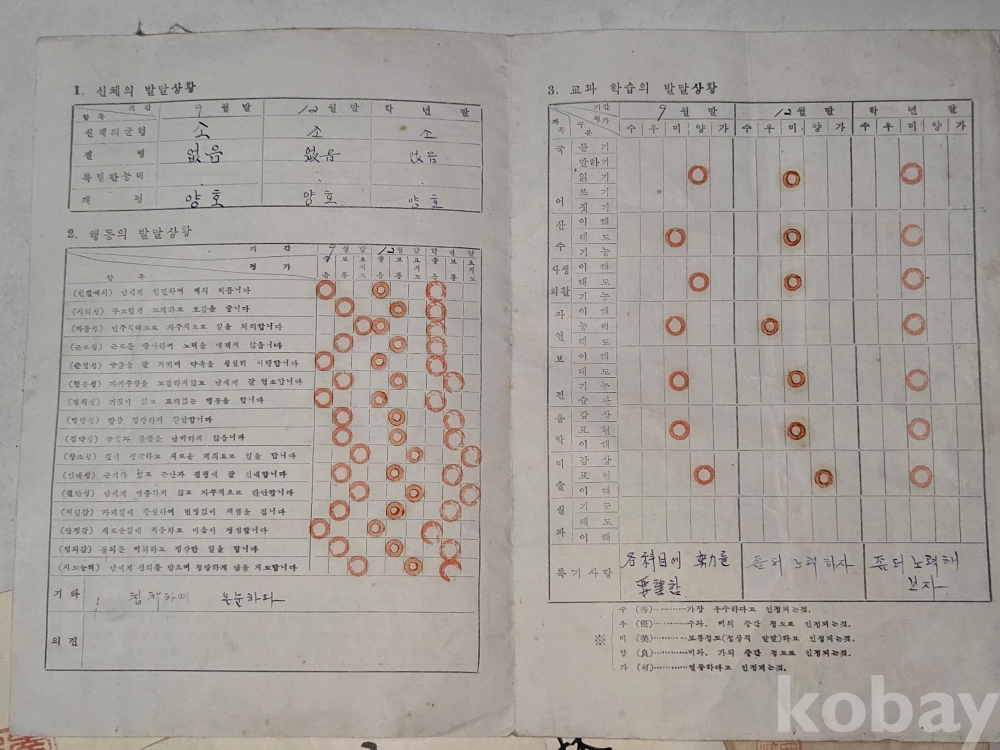 1. 신체의 발달상황
기간 9월말 12월말 학년말
항목
신체의균형 소 소 소
질병 없음 없음 없음
특별한능력
개평 양호 양호 양호
2. 행동의 발달상황
기간 9월말 12월말 학년말
평가 좋음 보통 요지도 좋음 보통 요지도 좋음 보통 요지도
항목
(친절예의) 남에게 친절하며 예의 바릅니다
(사회성) 부드럽게 교제하고 호감을 줍니다
(자율성) 민주적태도로 자주적으로 일을 처리합니다
(근로성) 근로를 즐겨하며 노력을 애끼지 않습니다
(준법성) 규율을 잘 지키며 약속을 성실히 이행합니다
(협동성) 자기주장을 고집하지않고 남에게 잘 협조합니다
(정직성) 거짓이 없고 표리없는 행동을 합니다
(명랑성) 항상 명랑하며 간달합니다
(절약성) 물품을 남비하지 않습니다
(창조성) 깊이 생각하고 새로운 계획으로 일을 합니다
(인내성) 끈기가 있고 곤난과 결핍에 잘 인내합니다
(결단성) 남에게 맹종하지 않고 자주적으로 판단합니다
(책임감) 자기일에 충실하며 변명없이 책임을 집니다
(안정감) 새로운일에 적응하고 마음이 평정합니다
(정의감) 불의를 미워하고 정당한 일을 합니다
(지도능력) 남에게 신뢰를 받으며 정당하게 남을 지도합니다
기타 침착하며 온순하다
의견
3. 교과 학습의 발달상황
기간 9월말 12월말 학년말
평가
과목 구분 수 우 미 양 가 수 우 미 양 가 수 우 미 양 가
국어 듣기
말하기
읽기
쓰기
짓기
산수 이해
태도
기능
사회생활 이해
태도
기능
자연 이해
능력
태도
보건 이해
태도
기능
습관
음악 감상
표현
이해
미술 감상
표현
이해
실과 기능
태도
이해
특기사항 各科目에 努力를 要望함 좀더 노력하자 좀더 노력해 보자.
수 (秀)………가장 우수하다고 인정되는것.
우 (優)………수와, 미의 중간 정도로 인정되는것.
※ 미 (美)………보통정도(정상적 발달)하고 인정되는것.
양 (良)………미와, 가의 중간 정도로 인정되는것.
가 (可)………열등하다고 인정되는것.
kobay